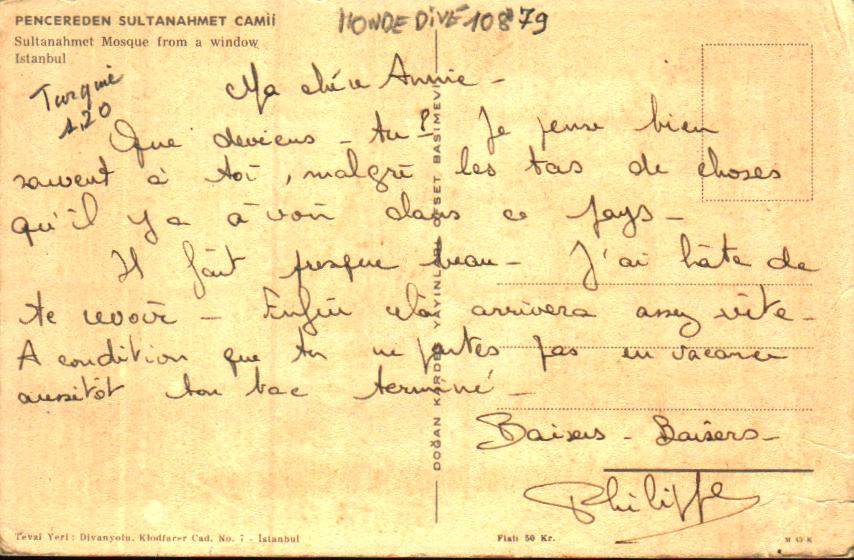 PENCEREDEN SULTANAHMET CAMİİ
Sultanahmet Mosque from a window
Istanbul
MONDE DIVE 108 79
Turquie
1.20
Ma chère Annie -
Que deviens - tu? Je pense bien
souvent à toi, malgré les tas de choses
qu'il y a à voir dans ce pays -
Il fait presque beau - J'ai hâte de
te revoir - Enfin cela arrivera assez vite -
A condition que tu ne partes pas en vacances
aussitôt ton bac terminé -
Baisers - Baisers -
Philippe
DOĞAN KARDEŞ YAYINLARI OFSET BASIMEVİ
Tevzi Yeri : Divanyolu, Klodfarer Cad. No. 7 - İstanbul
Fiatı 50 Kr.
M 45 K